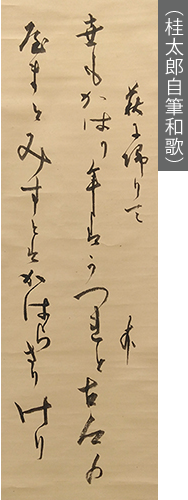 （桂太郎自筆和歌）
萩に帰りて
世もかはり年はうつれと古の
屋まとみすとはかはらさりけり